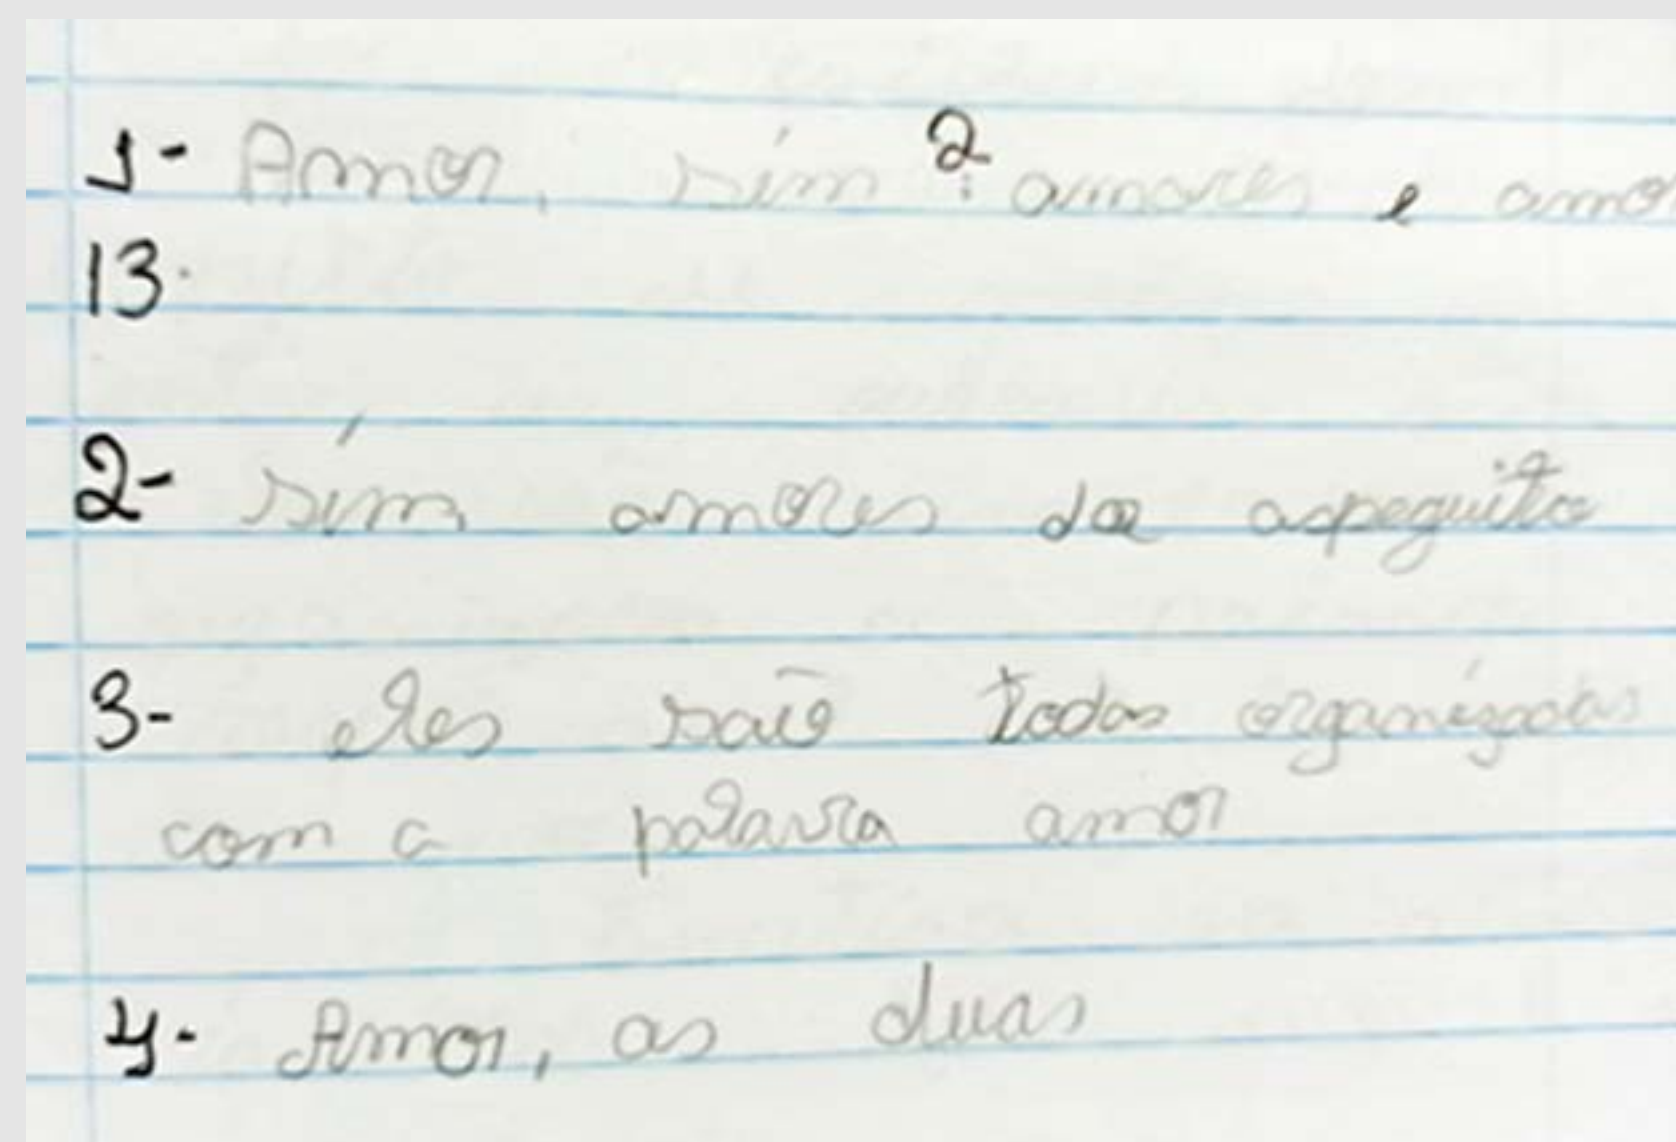 1- Amor, sim 2 amores e amor
13.
2- sim, amores da aspeguita
3- eles são todos organizados
com a palavra amor
4- Amor, as duas